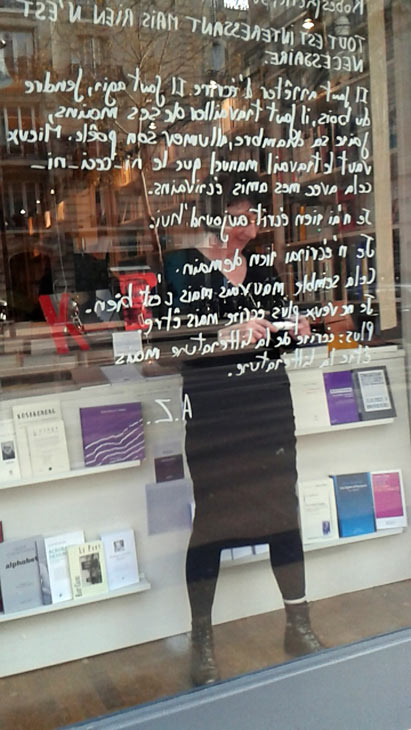 TOUT EST INTERESSANT MAIS RIEN N'EST
NECESSAIRE.
Il faut arrêter d'écrire. Il faut agir, fendre
du bois, il faut travailler de ses mains,
faire sa chambre, allumer son poêle. Mieux
vaut le travail manuel que le ni_ceci_ni_
cela avec mes amis écrivains.
Je n'ai rien écrit aujourd'hui.
Je n'écrirai rien demain.
Cela semble mauvais mais c'est bien.
Je ne veux plus écrire mais être
Plus: écrire de la littérature mais
être la littérature.
A.Z..
K
alphabet